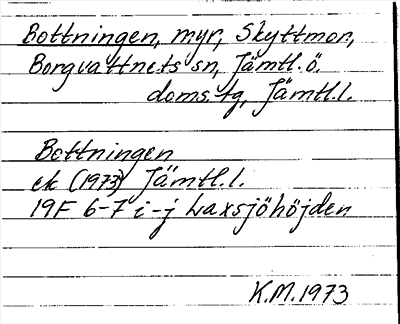 Bottningen, myr, Skyttmon,
Borgvattnets sn, Jämtl.ö.
doms.tg, Jämtl.l.
Bottningen
ek (1973) Jämtl.l.
19F 6-7 i-j Laxsjöhöjden
K.M.1973